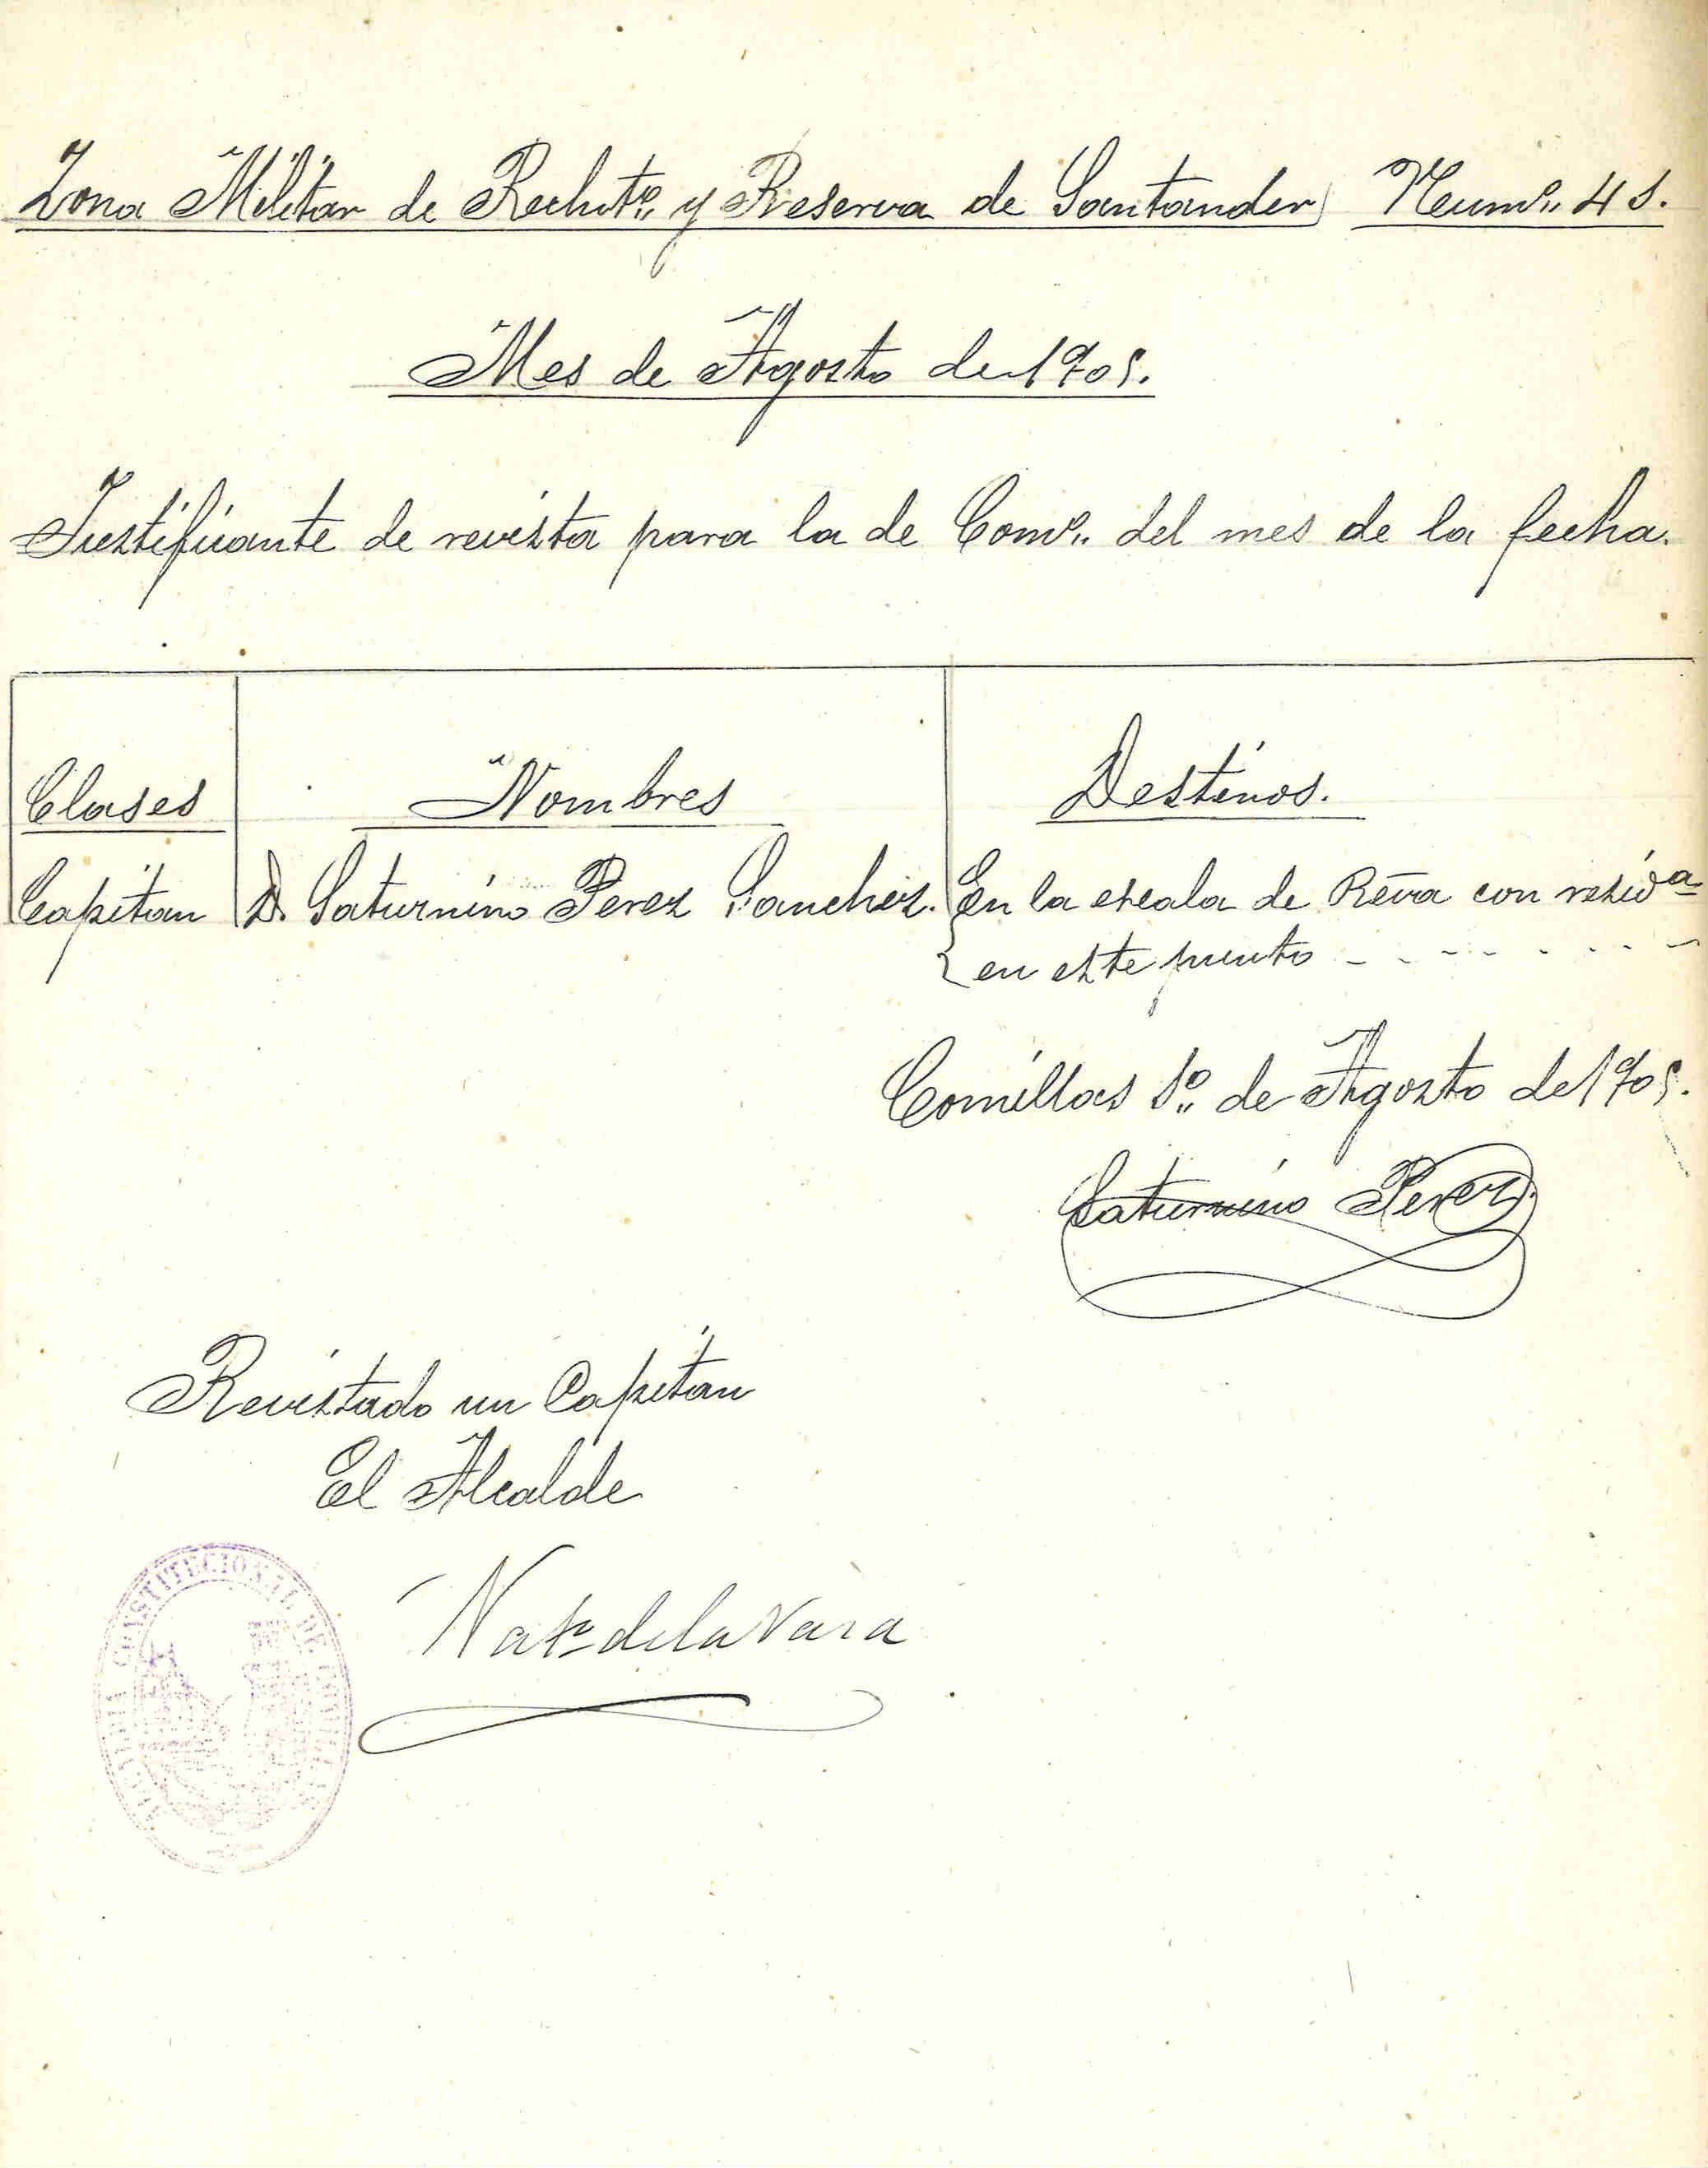 Zona Militar de Recluto. y Reserva de Santander Numo. 41.
Mes de Agosto de 1905.
Justificante de revista para la de Como. del mes de la fecha.
Clases Nombres Destinos.
Capitan D. Saturnino Perez Sanchez. En la escala de Reva con resida
en este punto
Comillas 1o. de Agosto de 1905.
Saturnino Perez
Revistado un Capitan
El Alcalde
de la Vara
ALCALDIA CONSTITUCIONAL DE COMILLAS